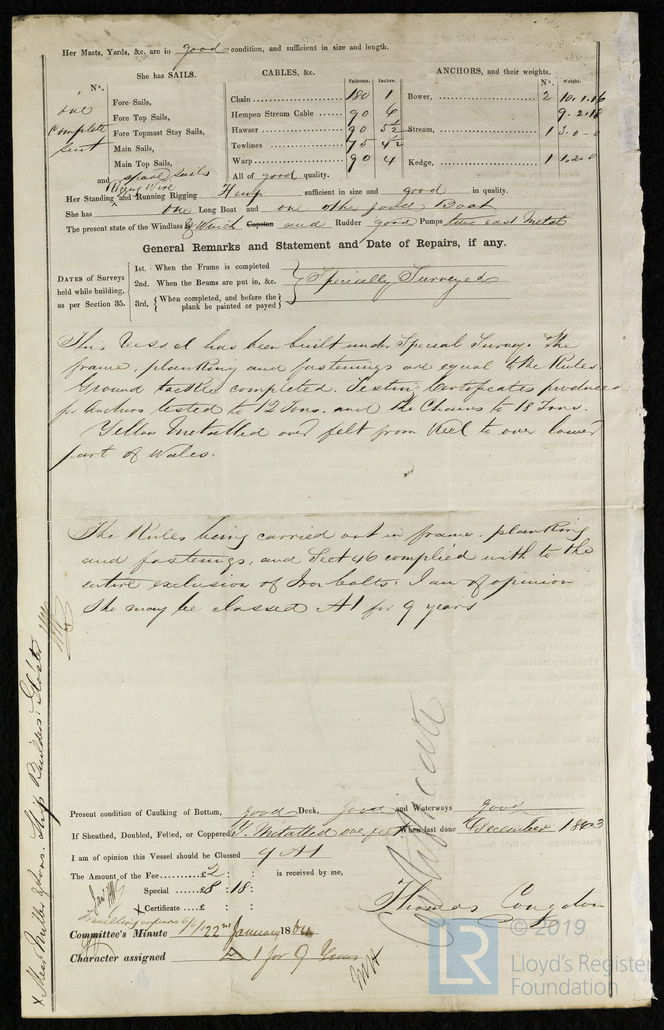 Her Masts, Yards, &c. are in good condition, and sufficient in size and length.
She has SAILS.
No.
one complete sett
Fore Sails,
Fore Top Sails,
Fore Topmast Stay Sails,
Main Sails,
Main Top Sails,
and spare sails
CABLES, &c. Fathoms. Inches.
Chain 180 1
Hempen Stream Cable 90 6
Hawser 90 5½
Towlines 75 4½
Warp 90 4
All of good quality.
ANCHORS, and their weights. No. Weight.
Bower, 2 10.1.16
9.2.18
Stream, 1 3.0-0
Kedge, 1 1.2.0
Her Standing Rigging Wire and Running Rigging Hemp sufficient in size and good in quality.
She has one Long Boat and one other good Boat
The present state of the Windlass & Winch Capstan and Rudder good Pumps two cast Metal
General Remarks and Statement and Date of Repairs, if any.
DATES of Surveys held while building, as per Section 35.
1st. When the Frame is completed
2nd. When the Beams are put in, &c.
3rd. When completed, and before the plank be painted or payed
Specially Surveyed
This Vessel has been built under Special Survey. The
frame, planking and fastenings are equal to the Rules.
Ground tackle completed. Testing Certificates produced
for Anchors tested to 12 Tons. and the Chains to 18 Tons.
Yellow Metalled over felt from Keel to over lower
part of Wales.
The Rules being carried out in frame, planking
and fastenings, and Sect 46 complied with to the
entire exclusion of Iron bolts, I am of opinion
She may be classed A1 for 9 years
Present condition of Caulking of Bottom, good Deck, good and Waterways good
If Sheathed, Doubled, Felted, or Coppered Y. Metalled over felt When last done December 1863
I am of opinion this Vessel should be Classed 9 A1
The Amount of the Fee £2 : : is received by me,
Special £8 : 18 :
Certificate £ : :
Travelling expenses
Thomas Congdon
Committee's Minute 22nd January 1864
Character assigned A 1 for 9 Years
Certificate
x Messrs Miller & Sons. Ship Builders. Gloster
LR
© 2019
Lloyd's Register
Foundation